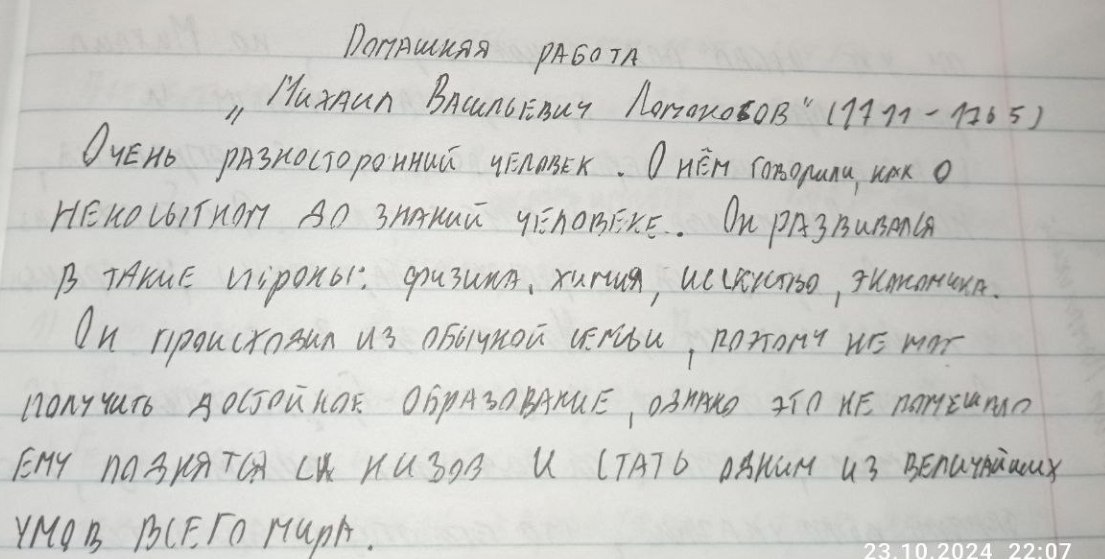 Домашняя работа
„Михаил Васильевич Ломоносов" (1711 - 1765)
Очень разносторонний человек. О нём говорили, как о
неносытном до знаний человеке. Он развивался
в такие стороны: физика, химия, искуство, экономика.
Он происходил из обычной семьи, поэтому не мог
получить достойное образование, однако это не помешало
ему поднятся с низов и стать одним из величайших
умов всего мира.
23.10.2024 22:07